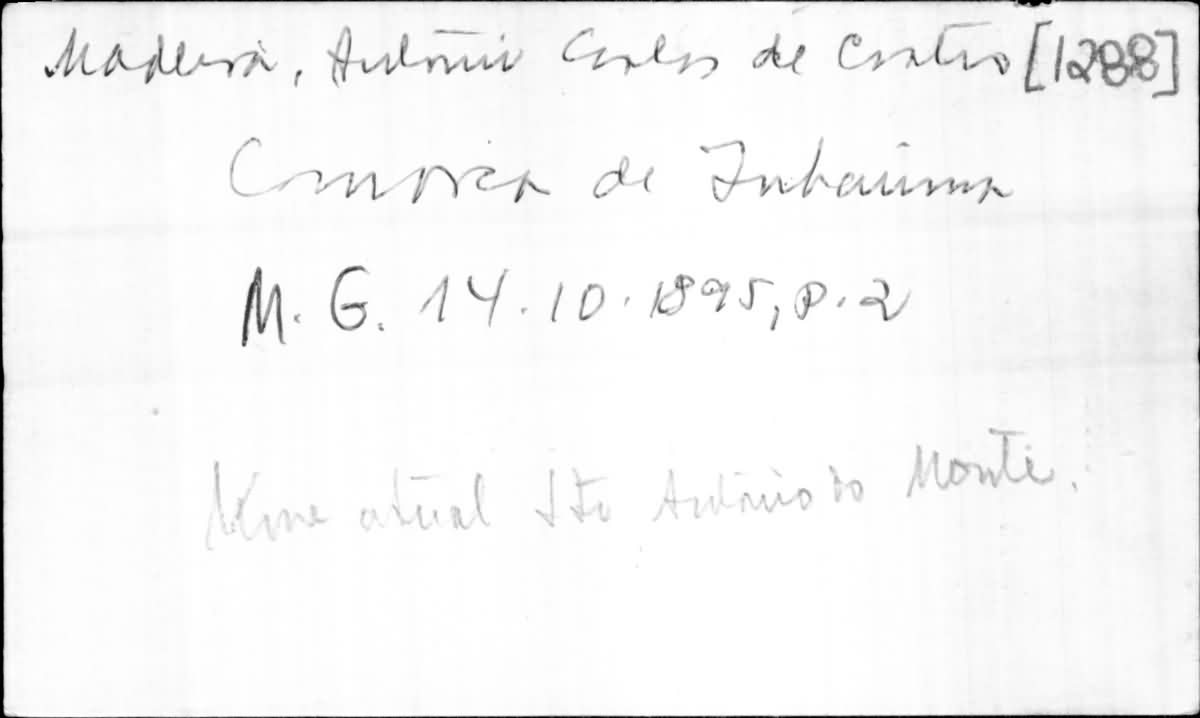 Madeira, Antônio Carlos de Castro [1288]
Comarca de Inhaúma
M. G. 14.10.1895, p.2
Nome atual Sto Antônio do Monte.